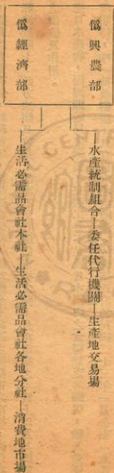 偽興農部
水產統制組合—委任代行機關—生產地交易場
偽經濟部
生活必需品會社本社—生活必需品會社各地分社—消費地市場